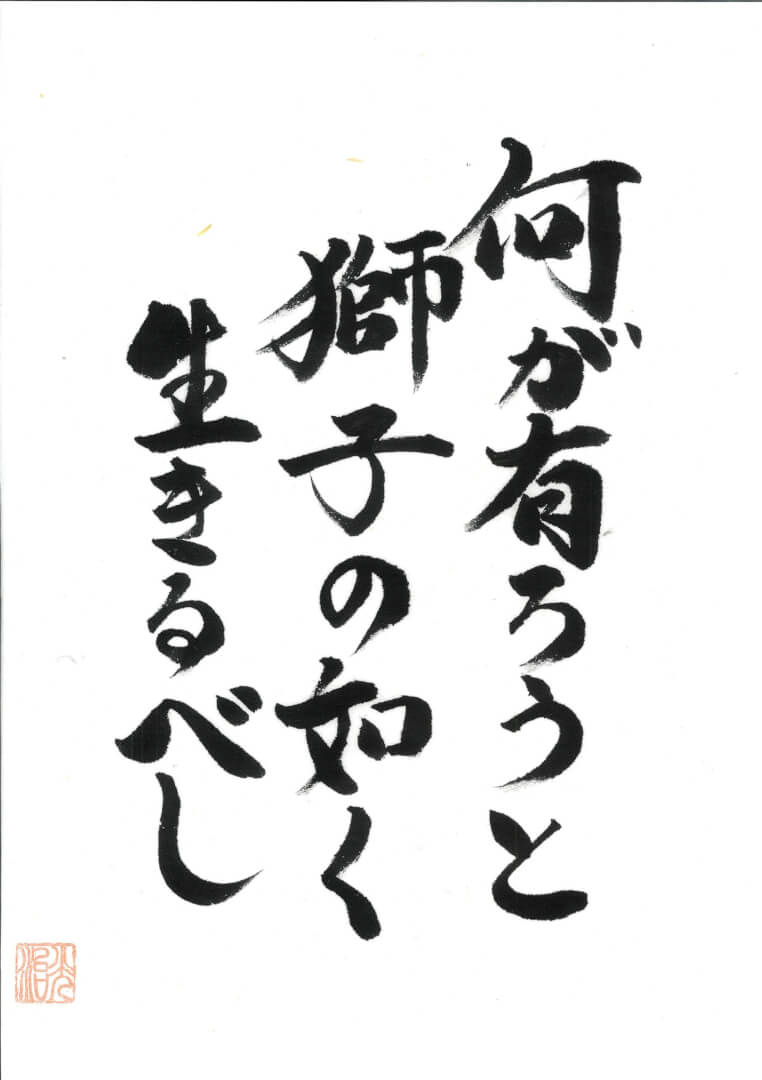 何が有ろうと
獅子の如く
生きるべし